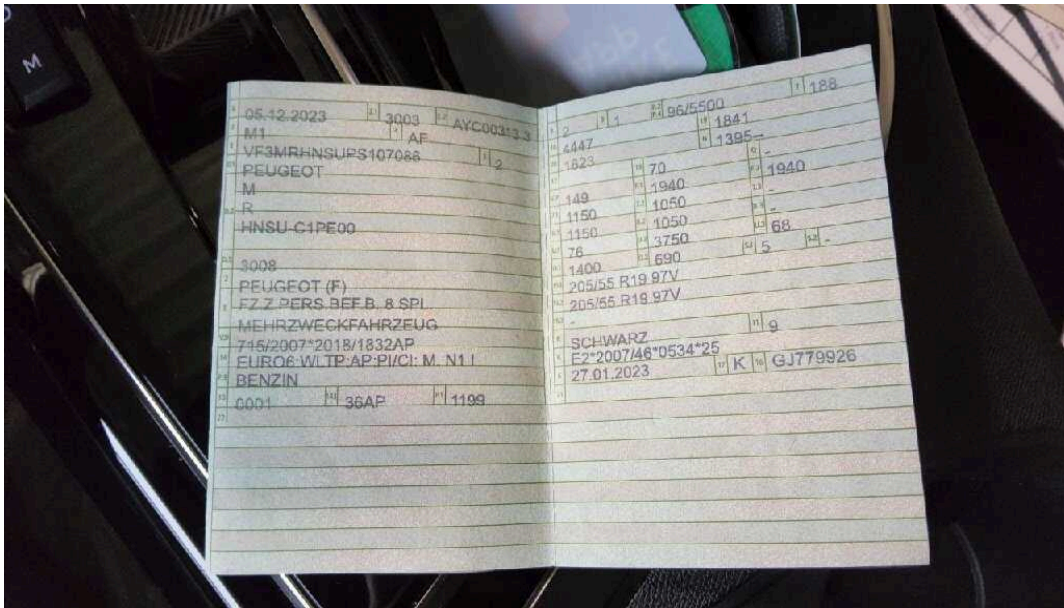 M
05.12.2023 3003 AYC00313 3
M1 AF
VF3MRHNSUPS107086 2
PEUGEOT
M
R
HNSU-C1PE00
3008
PEUGEOT (F)
FZ.Z.PERS.BEF.B. 8 SPL
MEHRZWECKFAHRZEUG
715/2007*2018/1832AP
EURO6;WLTP;AP;PI/CI; M, N1 I
BENZIN
0001 36AP 1199
2 1 96/5500 188
4447 1841
1623 1395-
70 -
149 1940 1940
1150 1050 -
1150 1050 -
76 3750 68
1400 690 5 -
205/55 R19 97V
205/55 R19 97V
-
SCHWARZ 9
E2*2007/46*0534*25
27.01.2023 K GJ779926